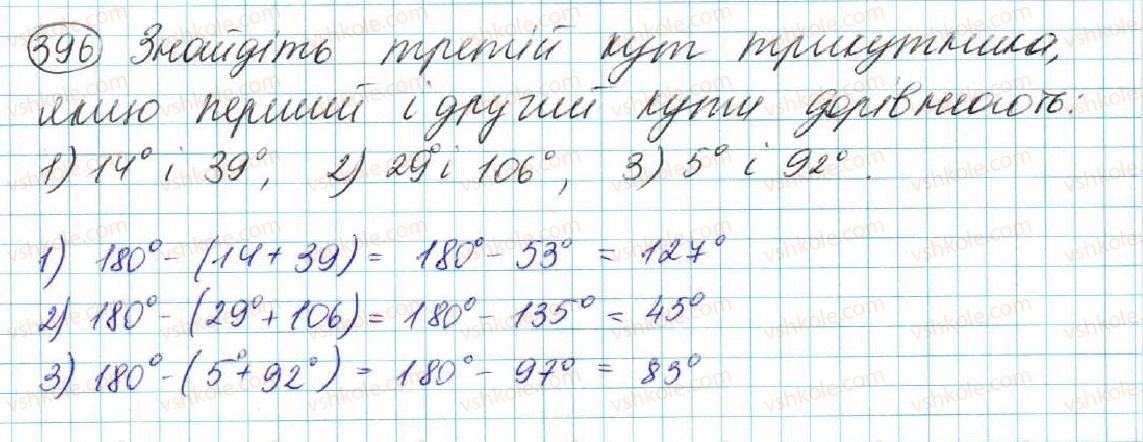 396 Знайдіть третій кут трикутника,
якщо перший і другий кути дорівнюють:
1) 14° і 39°, 2) 29° і 106°, 3) 5° і 92°.
1) 180° - (14 + 39) = 180° - 53° = 127°
2) 180° - (29° + 106) = 180° - 135° = 45°
3) 180° - (5° + 92°) = 180° - 97° = 83°